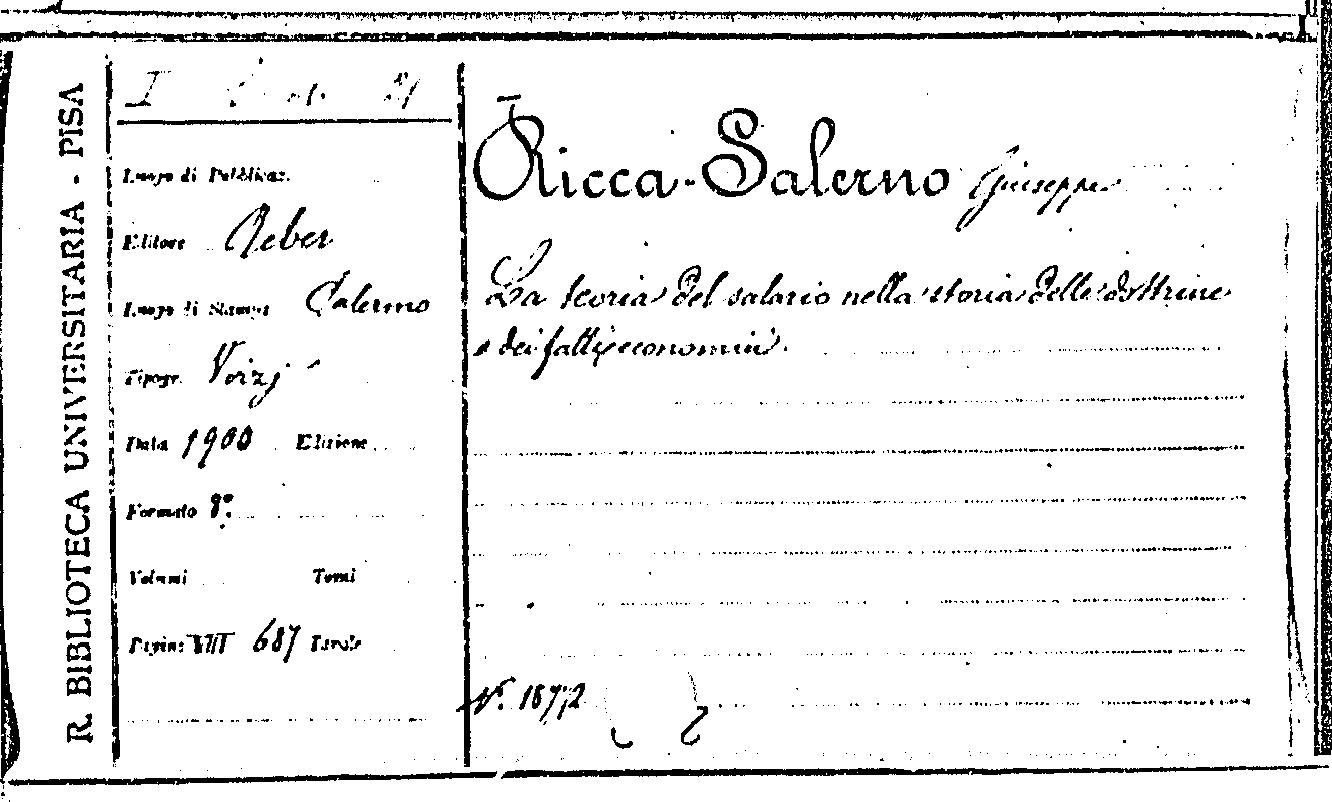 R. BIBLIOTECA UNIVERSITARIA - PISA
I 21
Luogo di Pubblicaz.
Editore Reber
Luogo di Stampa Palermo
Tipogr.
Data 1900 Edizione
Formato 8º.
Volumi Tomi
Pagine VIII 687 Tavole
Ricca-Salerno Giuseppe
La teoria del salario nella storia delle dottrine
e dei fatti economici.
Nº. 1877,2